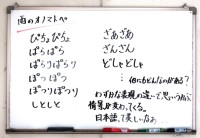 雨のオノマトペ
ぴちょぴちょ
ぱらぱら
ぱらりぱらり
ぽっぽっ
ぽつりぽつり
しとしと
ざあざあ
ざんざん
どしゃどしゃ
… 他にもどんなのがある?
わずかな表現の違いで思いうかぶ
情景が変わってくる。
日本語って美しいなぁ